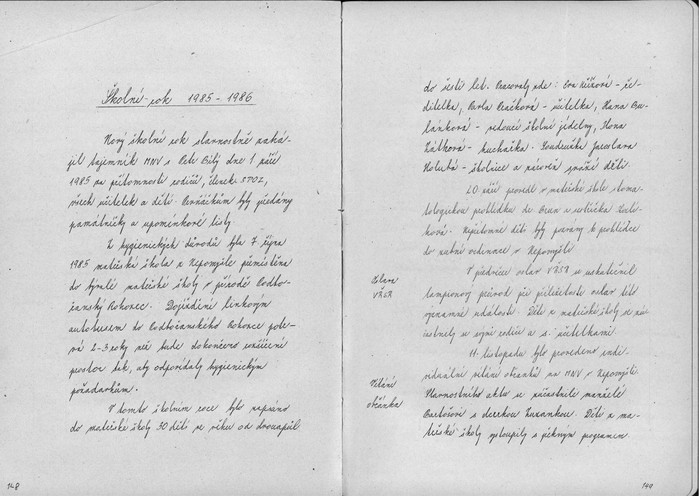 Školní rok 1985 - 1986
Nový školní rok slavnostně zahá-
jil tajemník MNV s. Petr Bílý dne 1. září
1985 za přítomnosti rodičů, členek SPOZ,
všech učitelek a dětí. Prvňáčkům byly předány
památníčky a upomínkové listy.
Z hygienických důvodů byla 7. října
1985 mateřská škola z Nepomyšle přemístěna
do bývalé mateřské školy v přírodě Podbo-
řanský Rohozec. Dojíždění linkovým
autobusem do Podbořanského Rohozce potr-
vá 2-3 roky než bude dokončeno zařízení
prostor tak, aby odpovídaly hygienickým
požadavkům.
V tomto školním roce bylo zapsáno
do mateřské školy 30 dětí ve věku od dvouapůl
148
do šesti let. Pracovaly zde: Eva - ře-
ditelka, Pavla - učitelka, Hana
- vedoucí školní jídelny, Ilona
- kuchařka. Soudružka Jaroslava
Holubá - školnice a zároveň sváží děti.
20. září provedl v mateřské škole stoma-
tologickou prohlídku dr. a sestřička
Nepřítomné děti byly pozvány k prohlídce
do zubní ordinace v Nepomyšli.
Oslava
VŘSR
V předvečer oslav VŘSR se uskutečnil
lampionový průvod při příležitosti oslav této
významné události. Děti z mateřské školy se zú-
častnily se svými rodiči a s. učitelkami.
Vítání
občánka
11. listopadu bylo provedeno indi-
viduální vítání občánků na MNV v Nepomyšli.
Slavnostního aktu se zúčastnili manželé
Bartošovi s dcerkou Zuzankou. Děti z ma-
teřské školy vystoupily s pěkným programem.
149